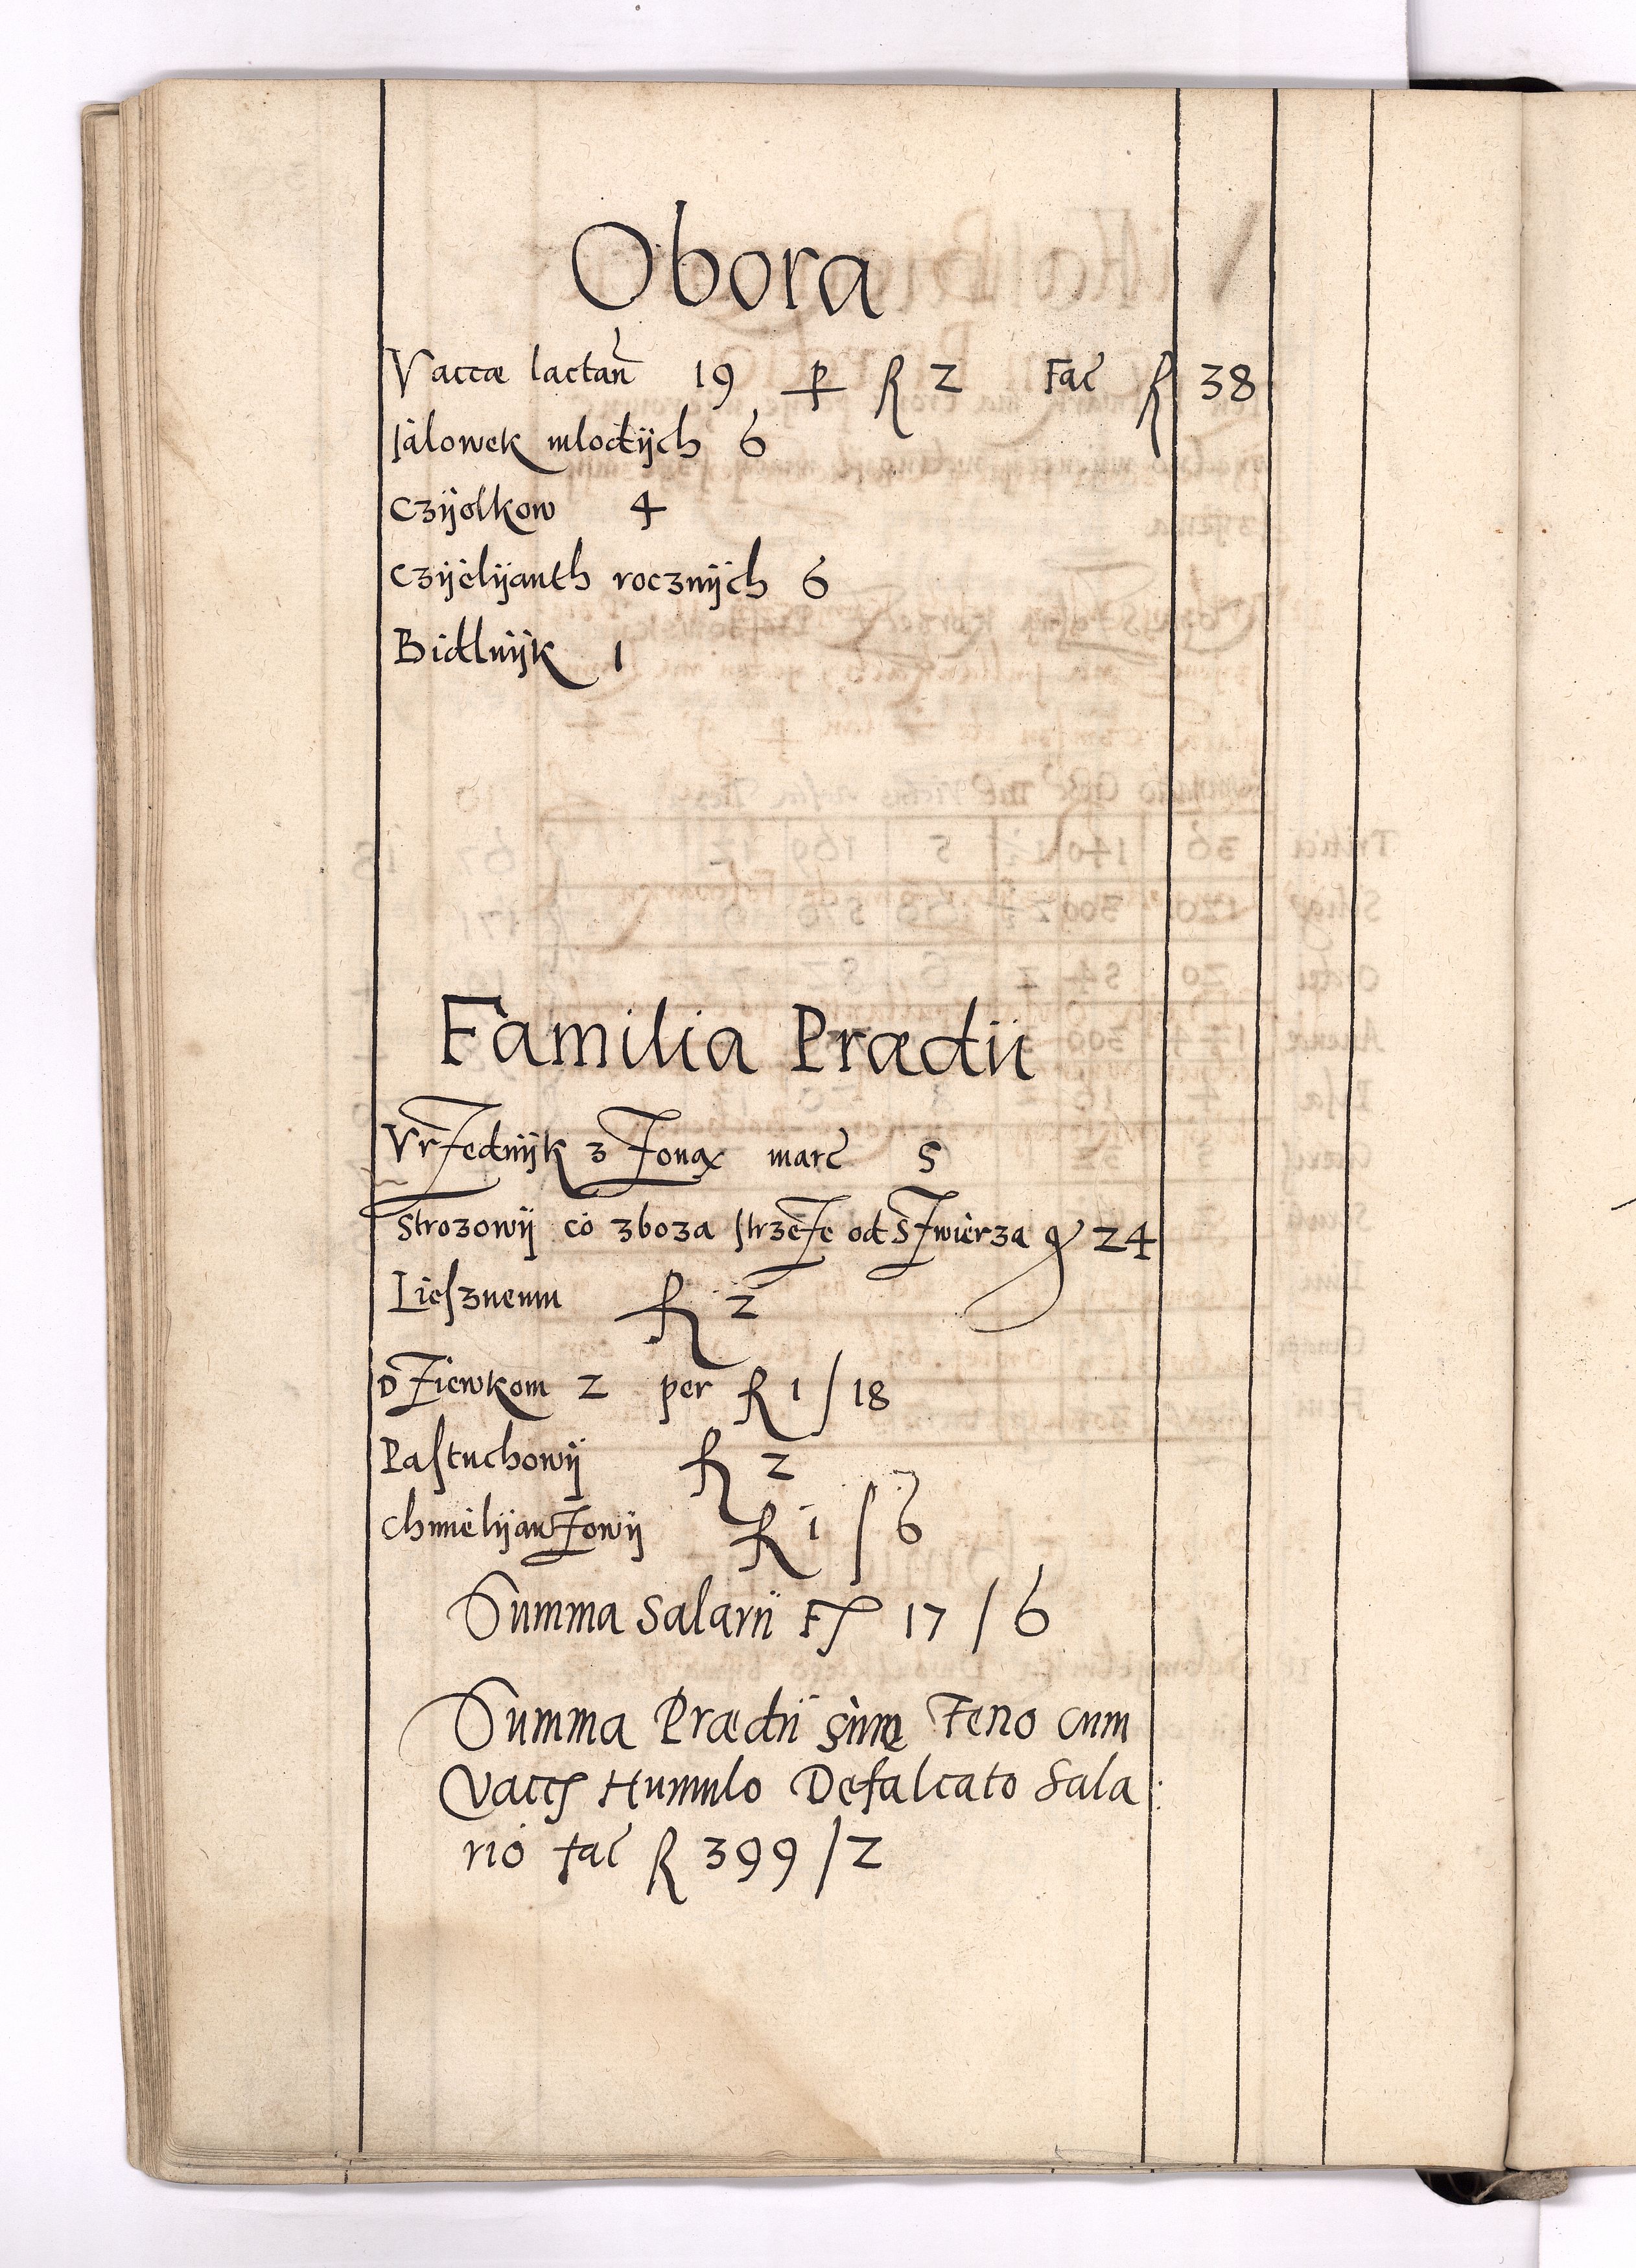 Obora
Vaccæ lactan̄ 19 ꝑ fl 2 Fac̄ fl 38
Jalowek mlodÿch 6
Czÿolkow 4
Czÿelÿanth rocznÿch 6
Bidlnÿk 1
Familia Prædii
Vrzednÿk z zoną marc̄ 5
Strozowÿ co zboza strzeze od Szwierza gr 24
Lieſznemu fl 2
Dziewkom 2 per fl 1 / 18
Paſtuchowÿ fl 2
Chmielÿarzowÿ fl 1 / 6
Summa Salarii Fl 17 / 6
Summa Prædii sine Feno cum
Vaccis Humulo Defalcato Sala:
rio fac̄ fl 399 / 2